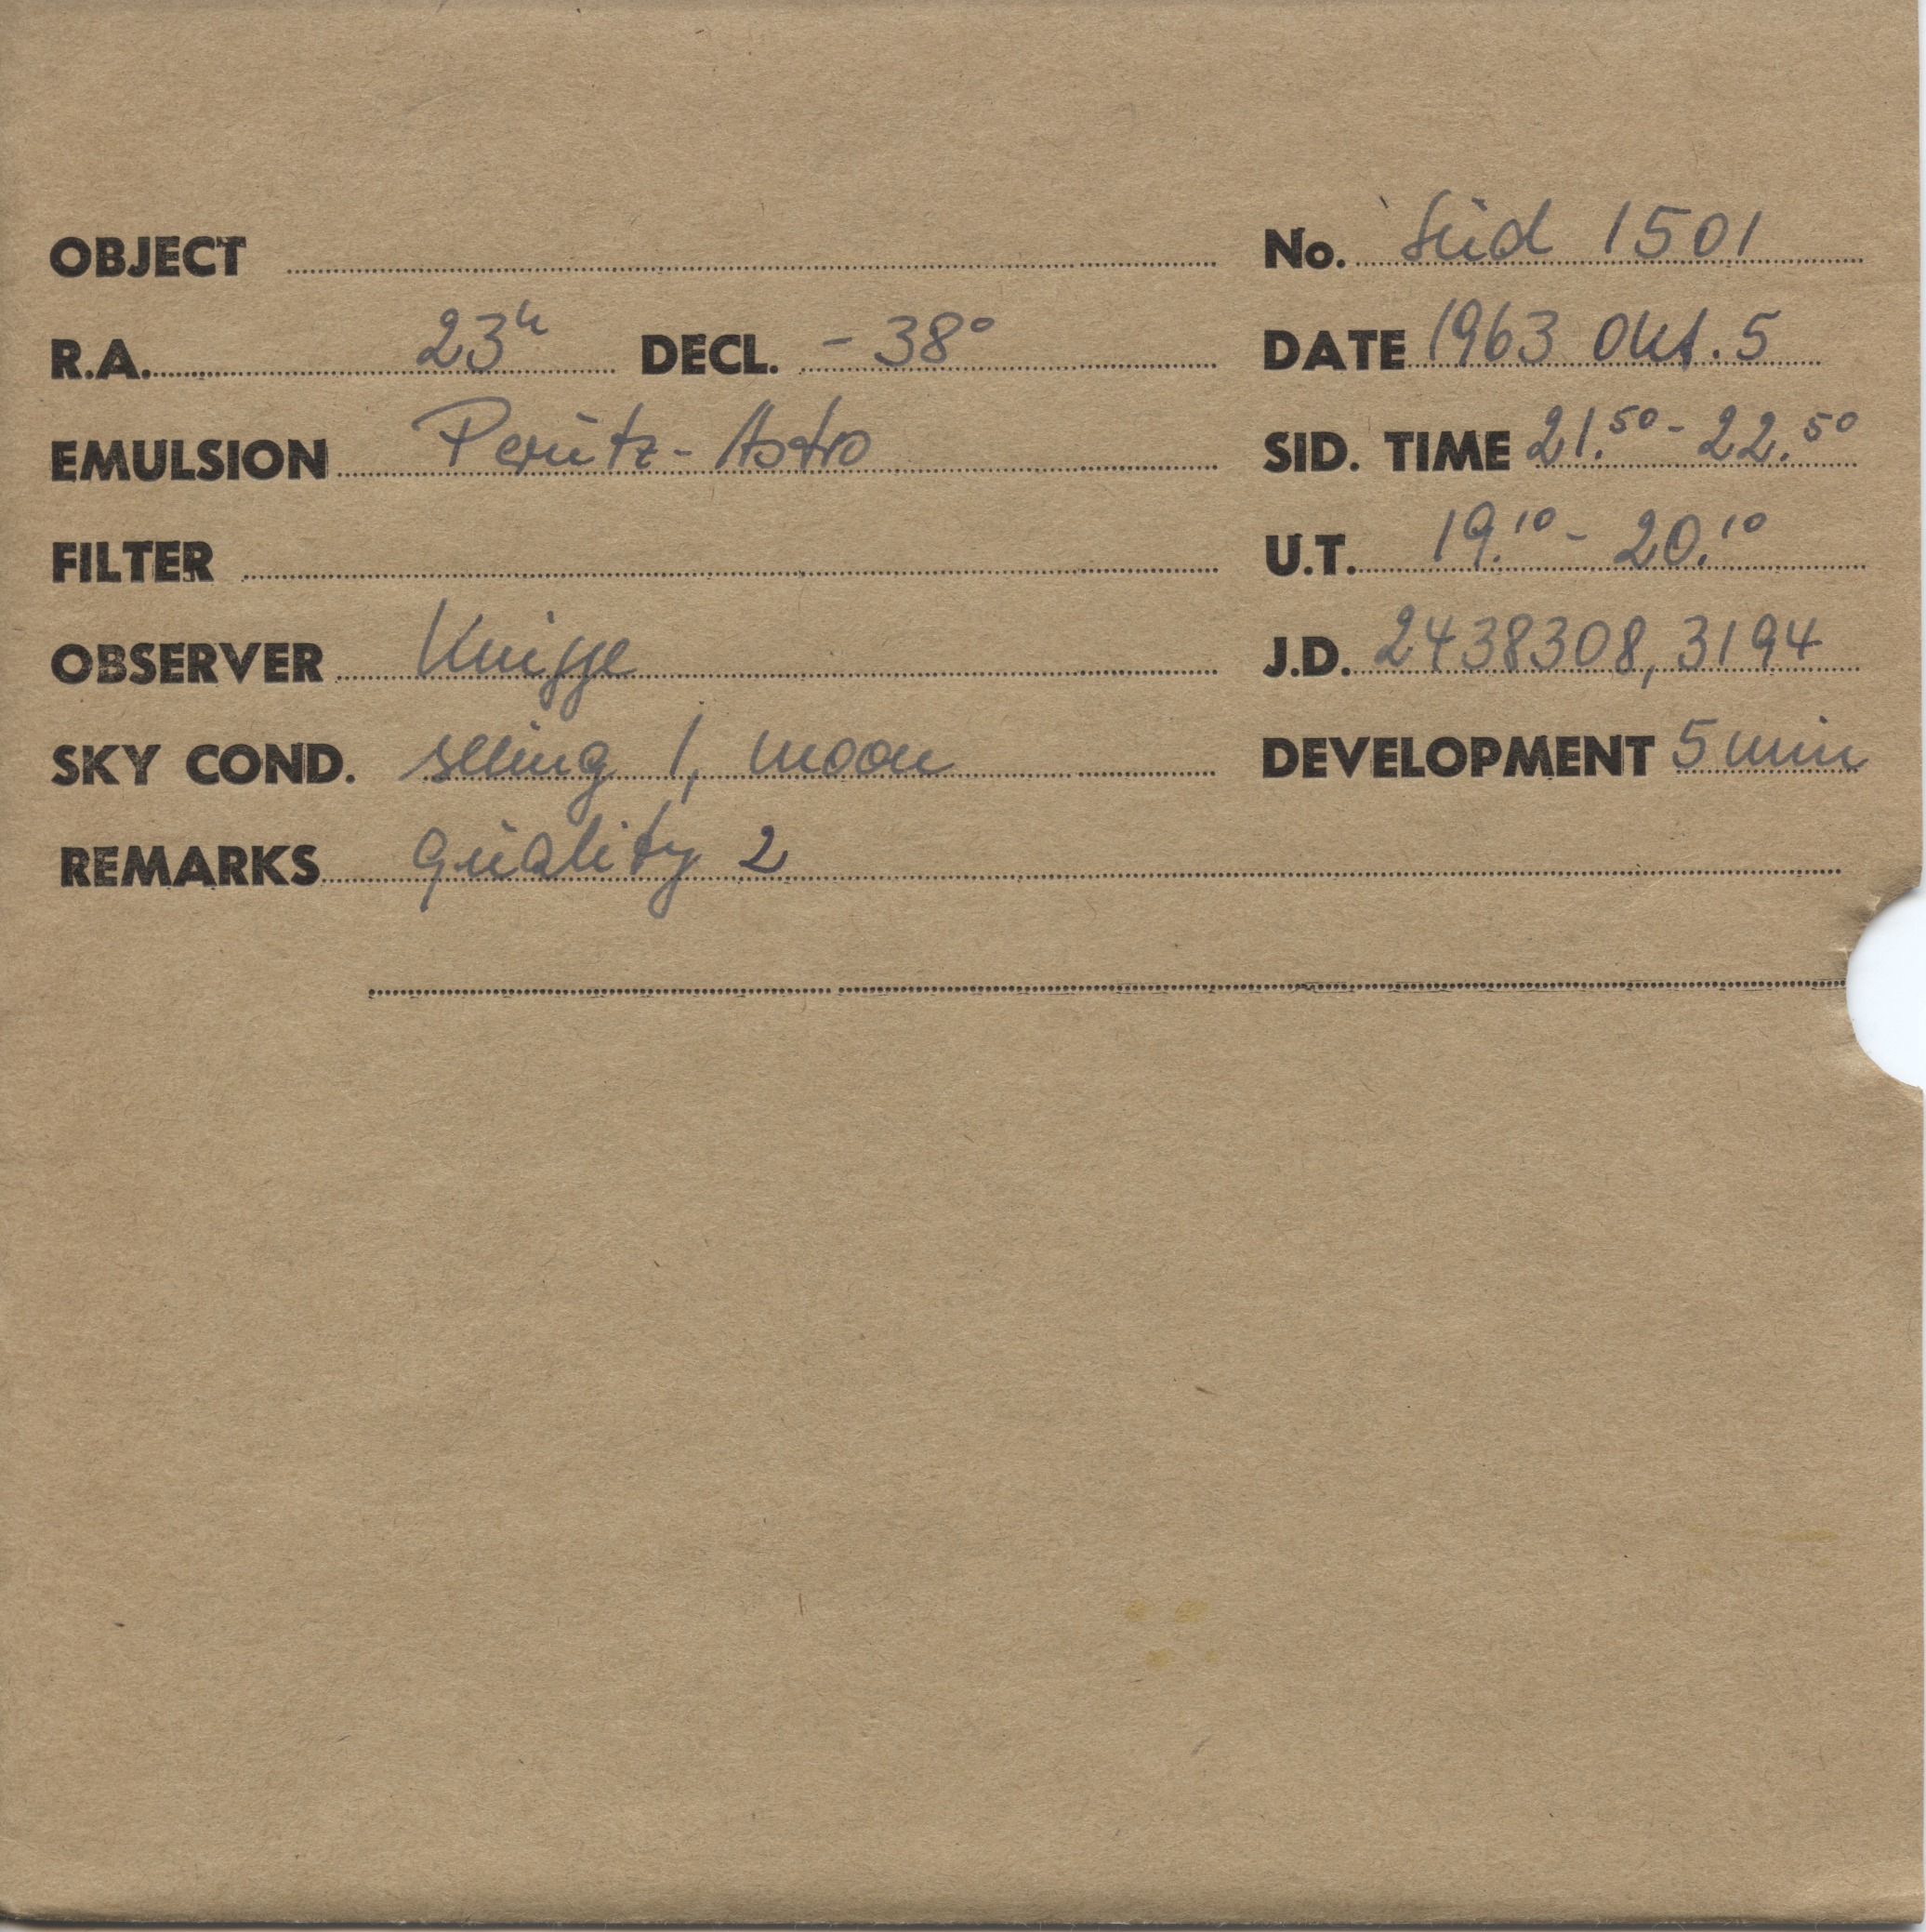 OBJECT No. Süd 1501
R.A. 23h DECL. - 38° DATE 1963 Okt. 5
EMULSION Perutz - Astro SID. TIME 21.50 - 22.50
FILTER U.T. 19.10 - 20.10
OBSERVER Knigge J.D. 2438308,3194
SKY COND. seeing 1, moon DEVELOPMENT 5 min
REMARKS quality 2